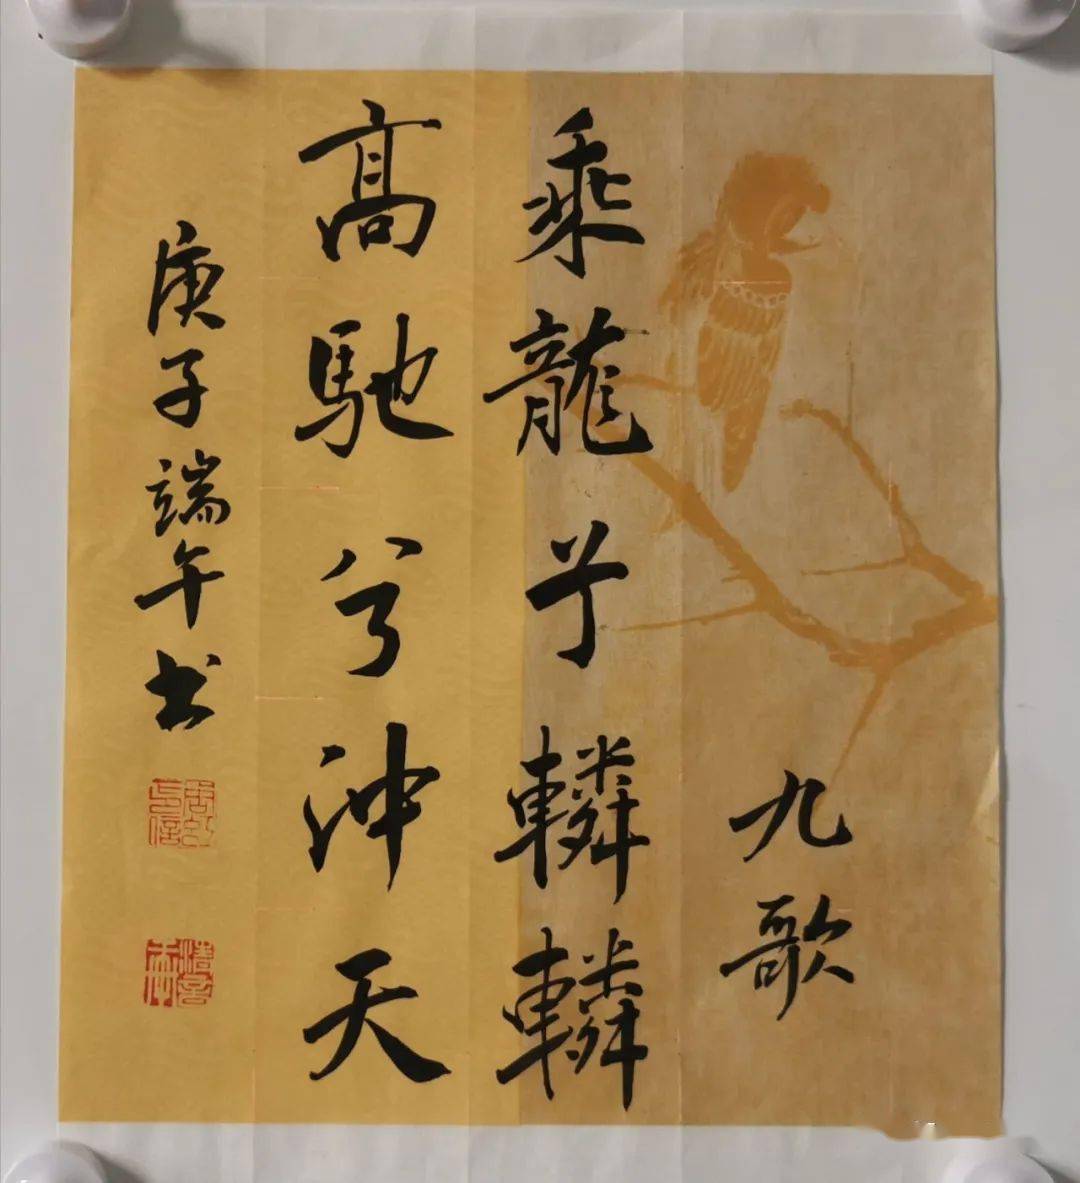 九歌
乘龍兮轔轔
高馳兮沖天
庚子端午书